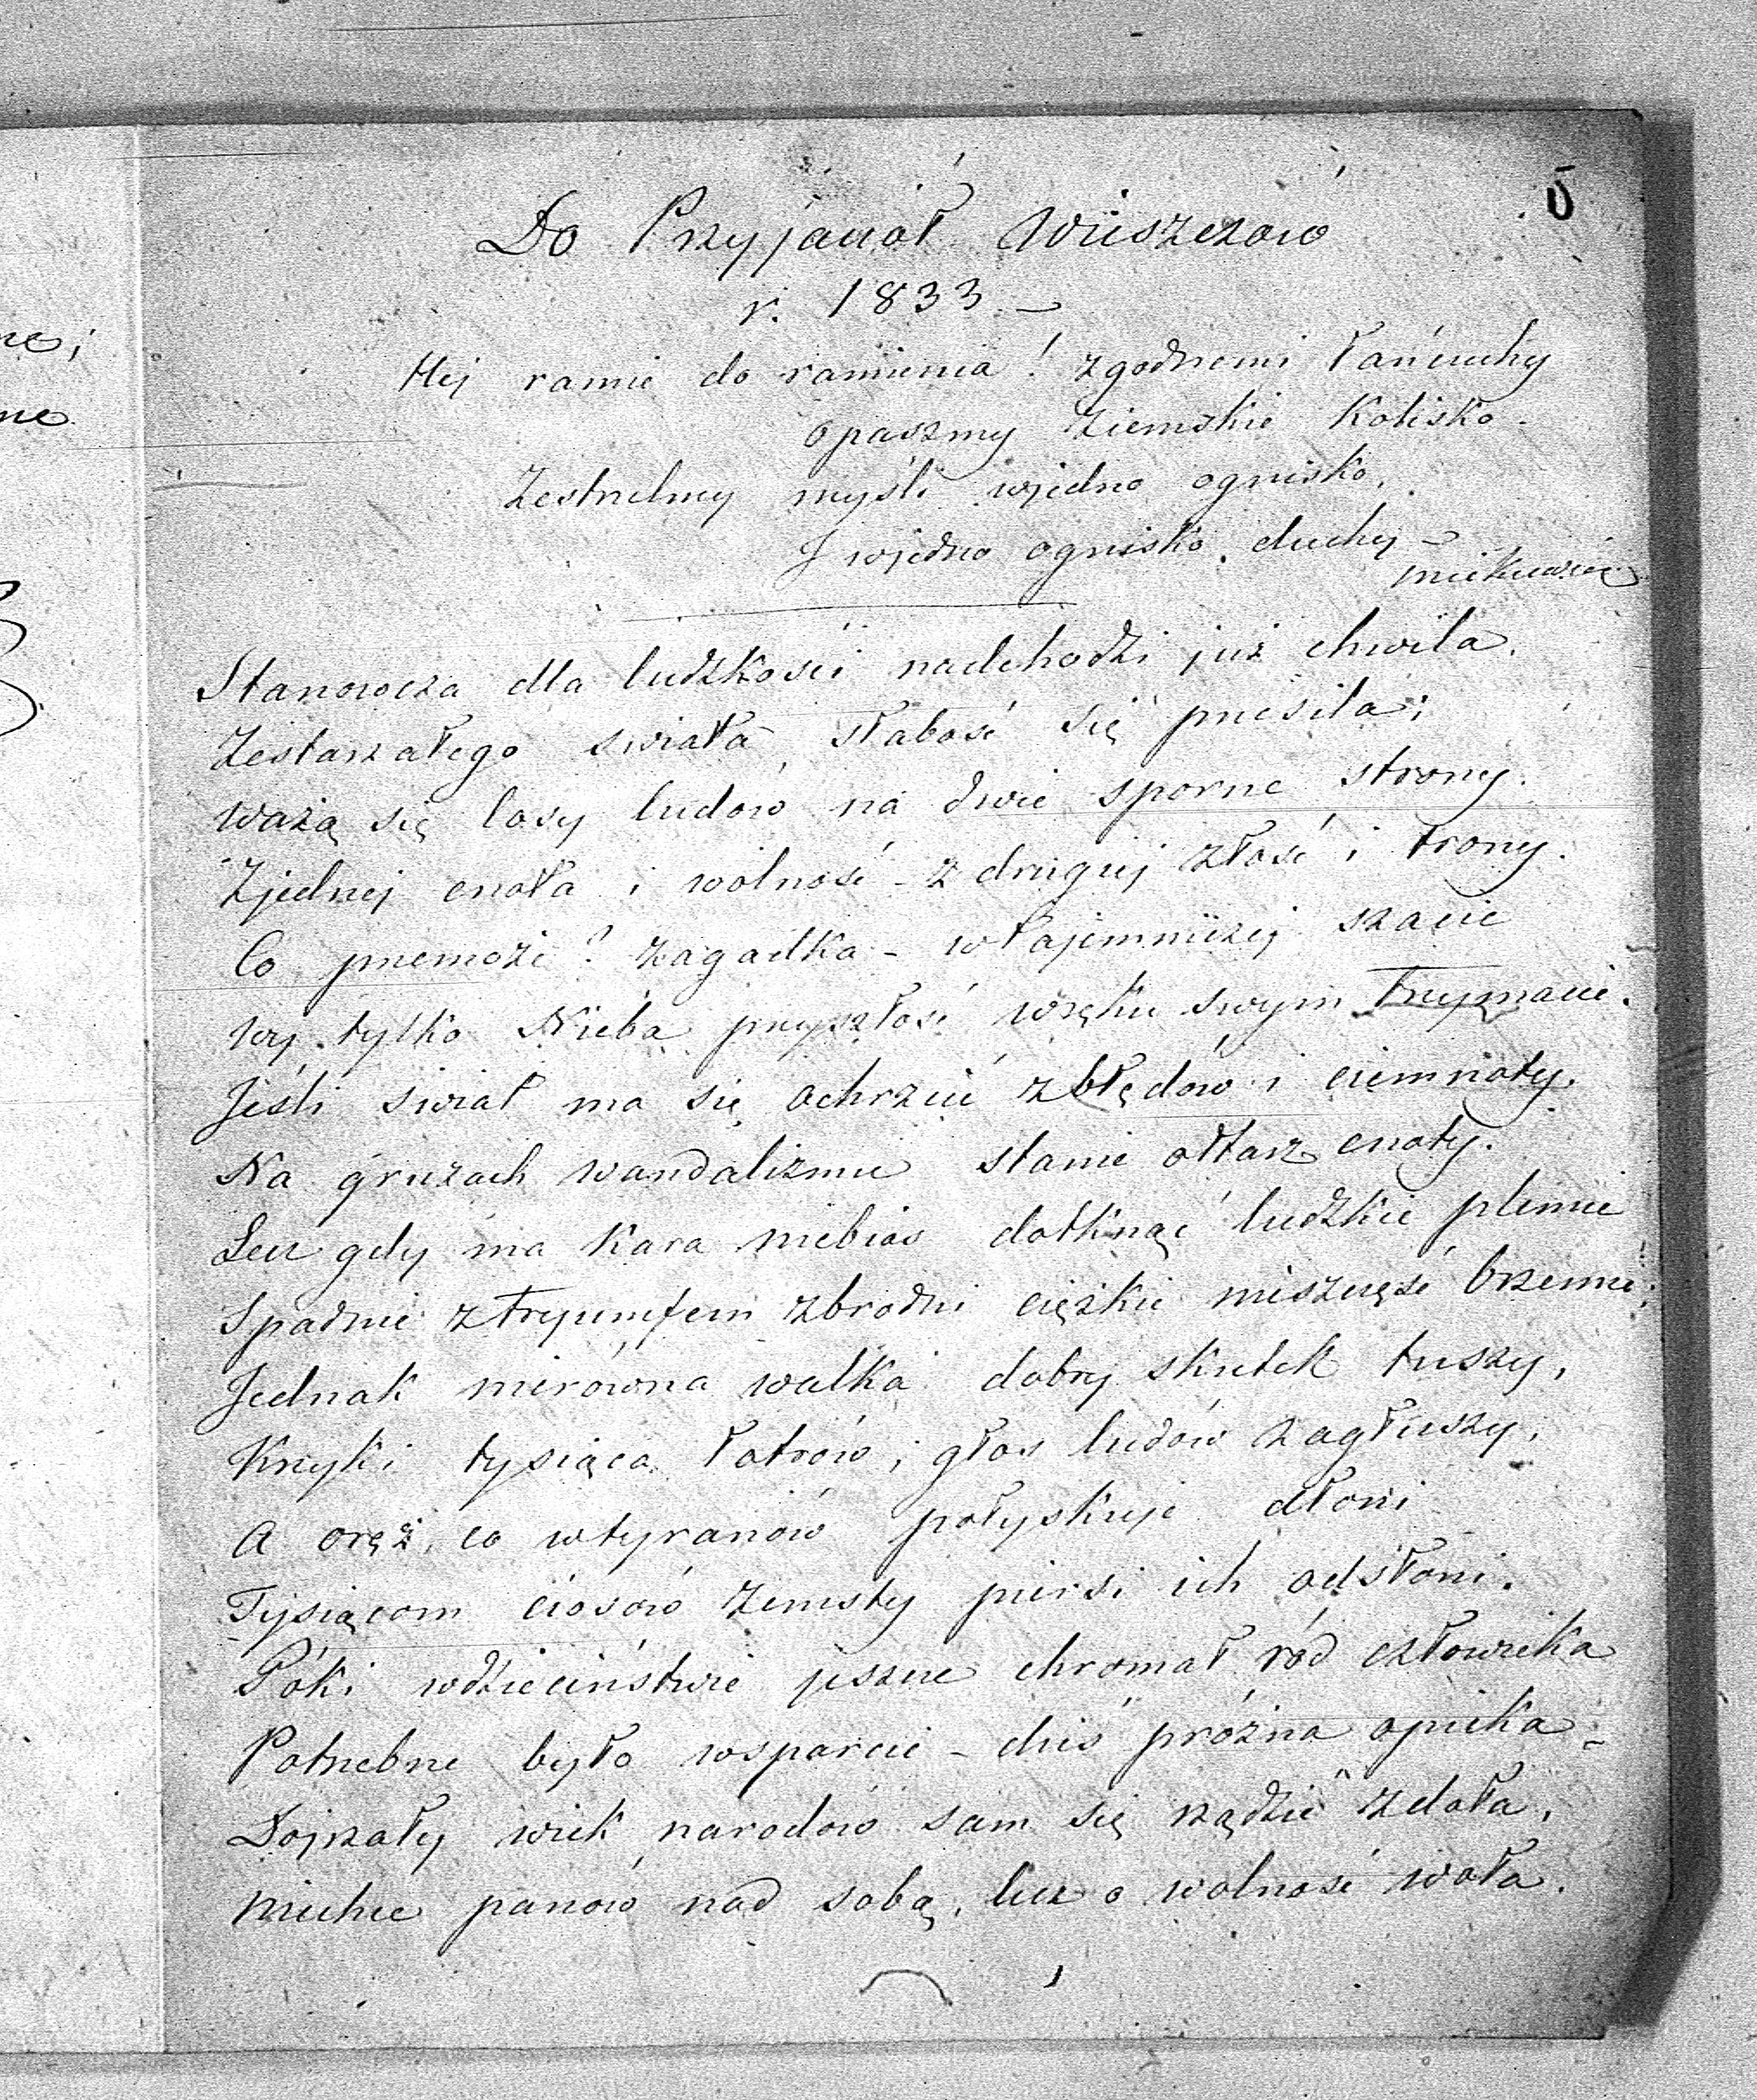 5
Do Przyjaciół Wieszczów
r. 1833 –
Hej ramie do ramienia! zgodnemi łańcuchy
opaszmy ziemskie Kolisko.
Zestrzelmy myśli wjedno ognisko,
I wjedno ognisko, duchy –
Mickiewicz
Stanowcza dla ludzkości nadchodzi już chwila,
Zestarzałego swiata słabość się przesila;
Ważą się losy ludów na dwie sporne strony.
Zjednej cnota i wolność – z drugiej złość i trony.
Co przemoże? zagadka – wtajemniczej szacie
Wy tylko Nieba przyszłość wręku swym trzymacie.
Jeśli świat ma się ochrzcić zbłędów i ciemnoty,
Na gruzach wandalizmu stanie ołtarz cnoty.
Lecz gdy ma kara niebios dotknąć ludzkie plemie
Spadnie ztryumfem zbrodni ciężkie nieszczęść brzemie;
Jednak nierówna walka dobry skutek tuszy,
Krzyki tysiąca łotrów, głos ludów zagłuszy,
A oręż, co wtyranów połyskuje dłoni
Tysiącom ciosów zemsty piersi ich odsłoni.
Póki wdzieciństwie jeszcze chromał ród człowieka
Potrzebne było wsparcie – dziś próżna opieka –
Dojrzały wiek narodów sam się rządzić zdoła,
Niechce panów nad sobą, lecz o wolność woła.